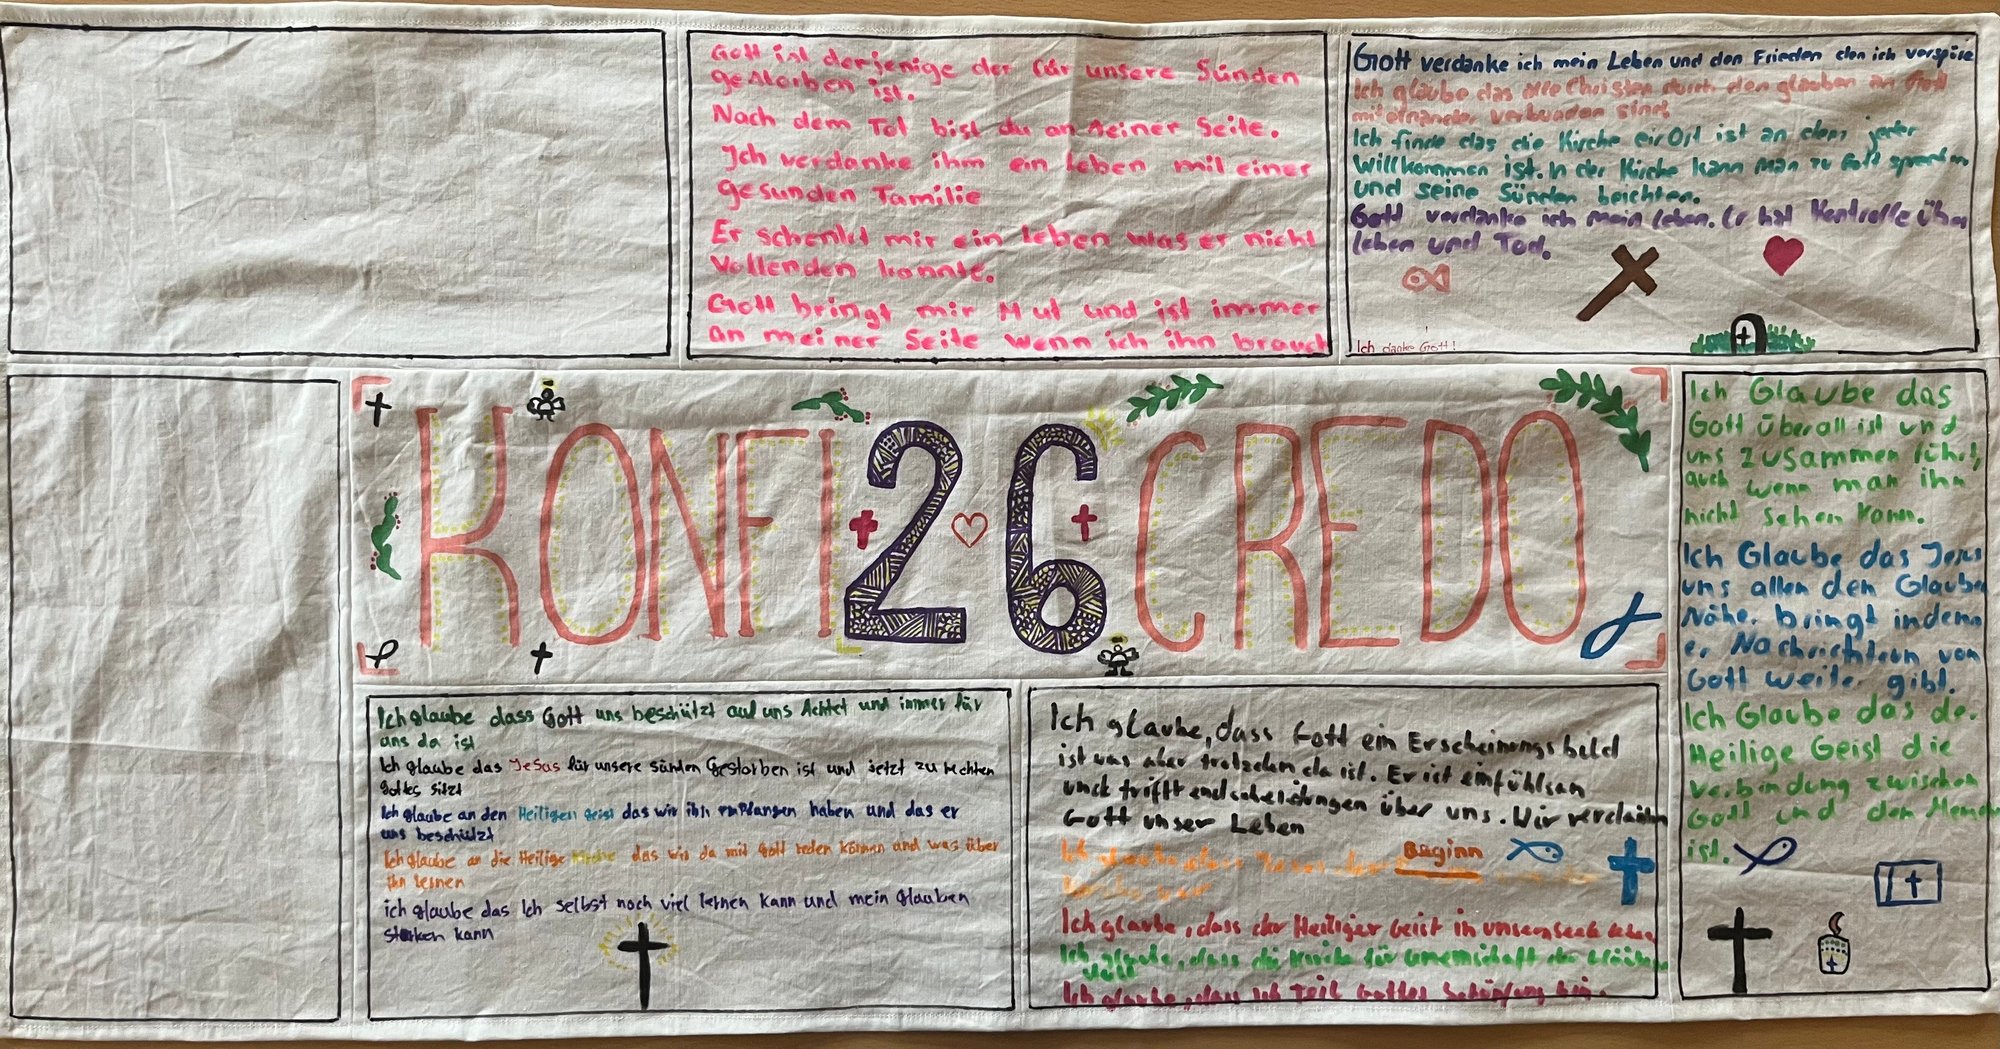 Gott ist derjenige der für unsere Sünden
gestorben ist.
Nach dem Tot bist du an seiner Seite.
Ich verdanke ihm ein Leben mit einer
gesunden Familie
Er schenkt mir ein Leben was er nicht
vollenden konnte.
Gott bringt mir Mut und ist immer
an meiner Seite wenn ich ihn brauch
Gott verdanke ich mein Leben und den Frieden den ich verspüre
Ich glaube das alle Christen durch den glauben an Gott
miteinander verbunden sind.
Ich finde das die Kirche ein Ort ist an dem jeder
Willkommen ist. In der Kirche kann man zu Gott sprechen
und seine Sünden beichten.
Gott verdanke ich mein Leben. Er hat Kontrolle über
leben und Tod.
Ich danke Gott!
KONFI 26 CREDO
Ich Glaube das
Gott überall ist und
uns zusammen führt,
auch wenn man ihn
nicht sehen kann.
Ich Glaube das Jesus
uns allen den Glauben
Näher bringt indem
er Nachrichten von
Gott weiter gibt.
Ich Glaube das der
Heilige Geist die
Verbindung zwischen
Gott und den
ist.
Ich glaube dass Gott uns beschützt auf uns Achtet und immer für
uns da ist
Ich glaube das Jesus für unsere sünden Gestorben ist und jetzt zu rechten
Gottes sitzt
Ich glaube an den Heiligen geist das wir ihn empfangen haben und das er
uns beschützt
Ich glaube an die Heilige Kirche das wir da mit Gott reden können und was über
ihn lernen
ich glaube das Ich selbst noch viel lernen kann und mein glauben
stärken kann
Ich glaube, dass Gott ein Erscheinungsbild
ist was aber trotzdem da ist. Er ist einfühlsam
und trifft endscheidungen über uns. Wir verdanken
Gott unser Leben
Beginn
Ich glaube, dass der Heiliger Geist in unseren Seele
Ich glaube, dass die Kirche für Gemeinschaft der
Ich glaube, dass Ich Teil Gottes Schöpfung bin.